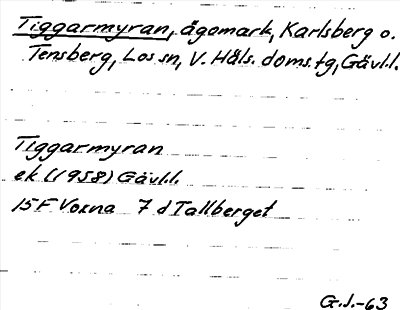 Tiggarmyran, ägomark, Karlsberg o.
Tensberg, Los sn, V. Häls. doms.tg, Gävl.l.
Tiggarmyran
ek (1958) Gävl.l.
15 F Voxna 7 d Tallberget
G.J.-63